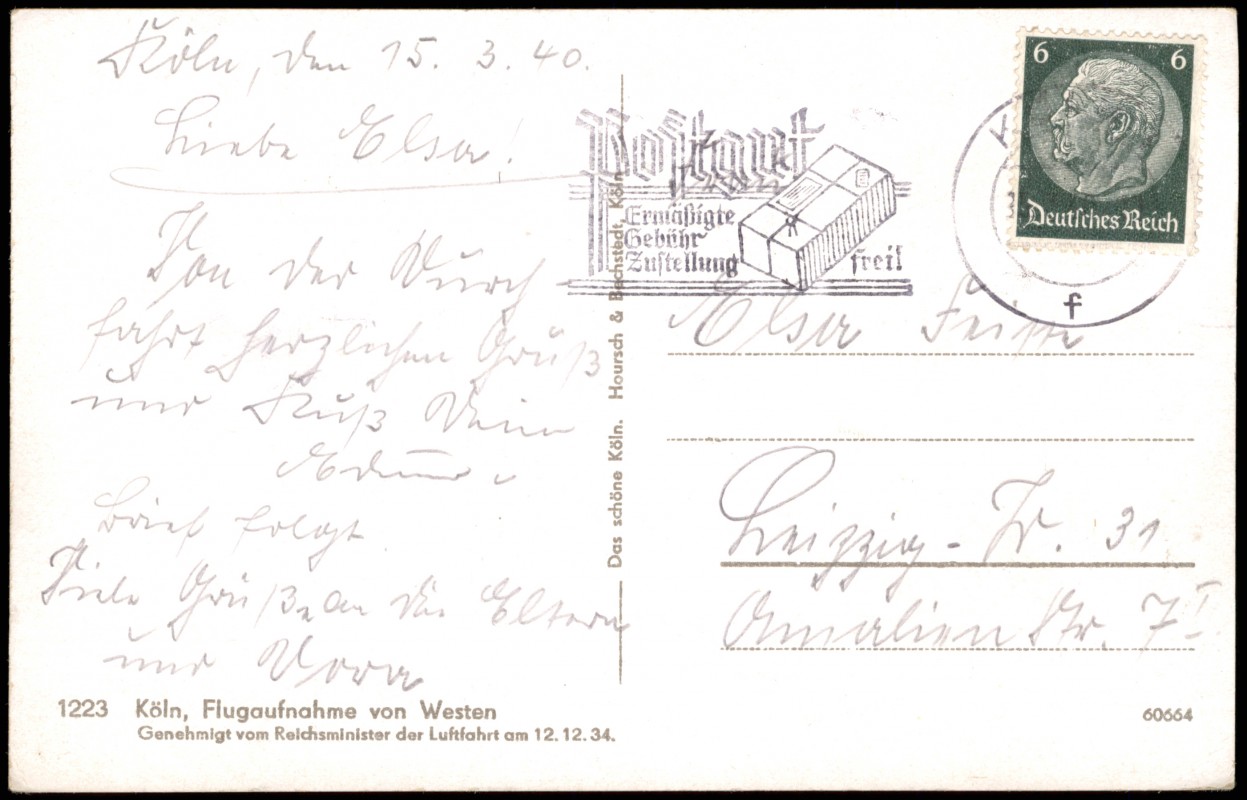 Köln, den 15. 3. 40.
Liebe Elsa!
Von der Durch
fahrt herzlichen Gruß
und Kuß Dein
Brief folgt
Viele Grüße an die Eltern
und Dora
1223 Köln, Flugaufnahme von Westen
Genehmigt vom Reichsminister der Luftfahrt am 12.12.34.
Das schöne Köln. Hoursch & Bechstedt, Köln
Postgut
Ermäßigte
Gebühr
Zustellung frei!
6 6
Deutsches Reich
K
f
Elsa
Leipzig - W. 31
Amalien Str. 7 I
60664